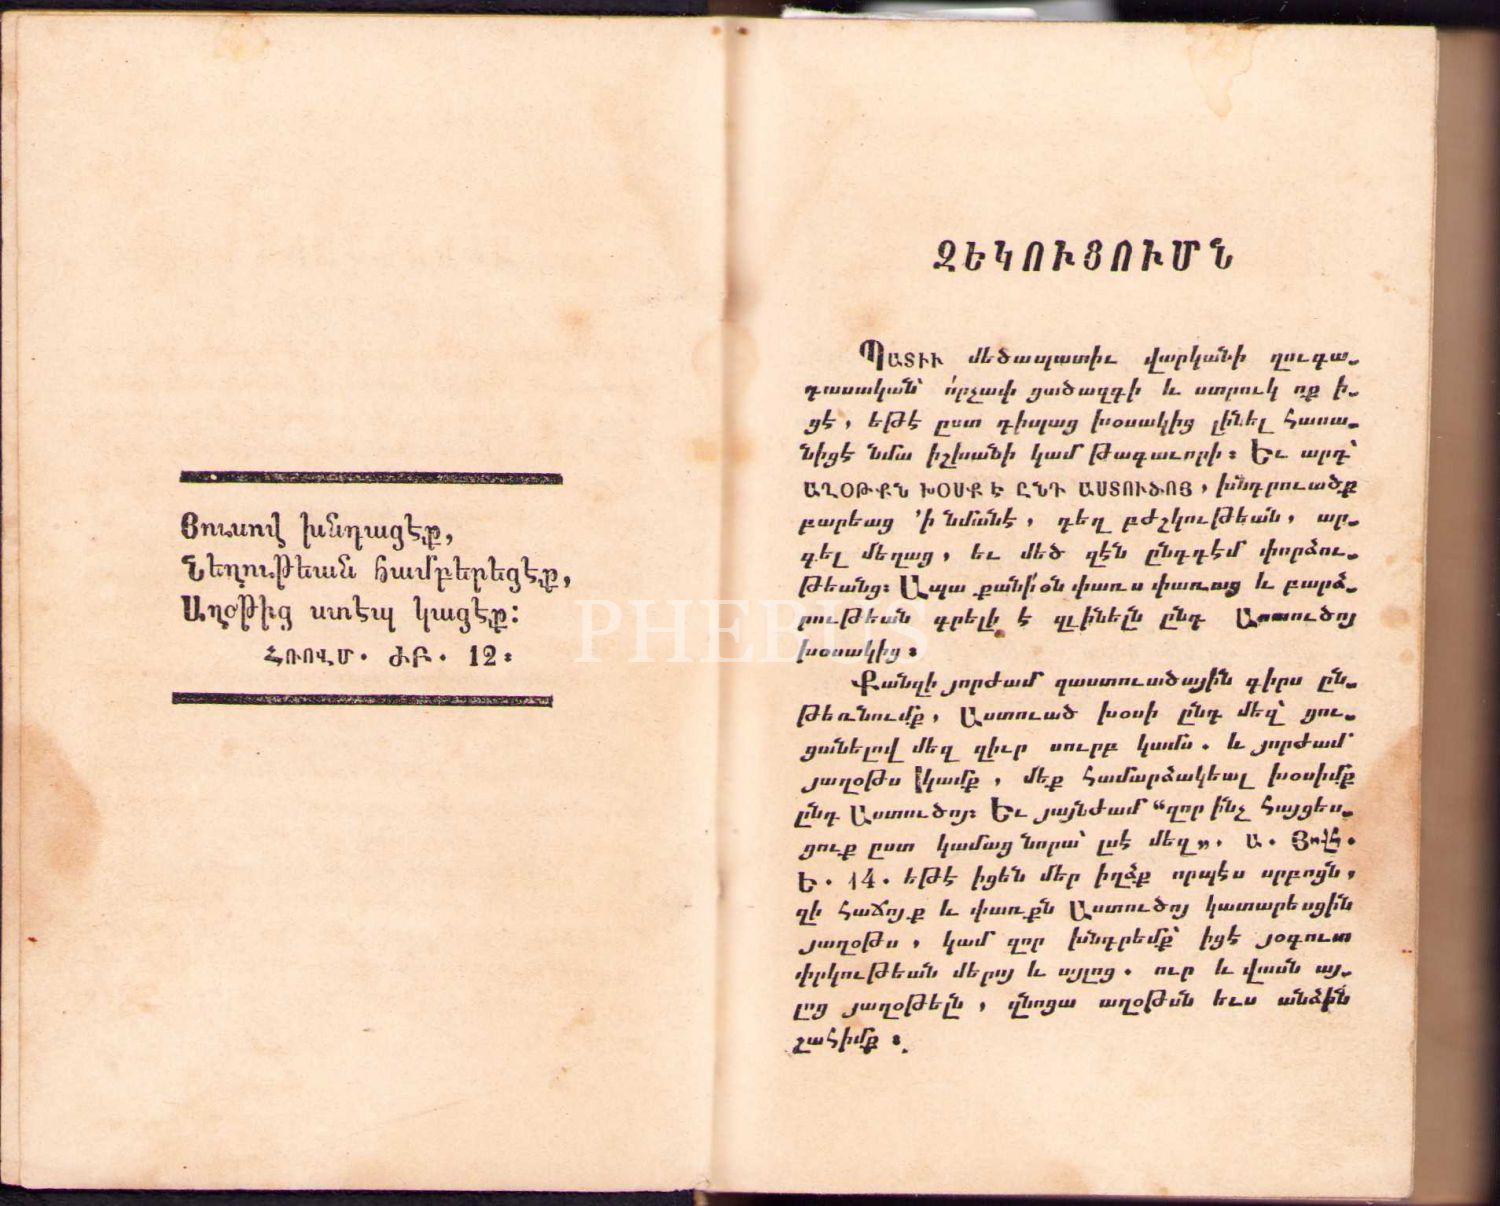 Յուսով խնդացէք,
Նեղութեան համբերեցէք,
Աղօթից ստէպ կացէք։
ՀՌՈՎՄ. ԺԲ. 12։
ԶԵԿՈՒՑՈՒՄՆ
ՊԱՏԻՒ մեծապատիւ վարկանի ղուգա֊
դասական՝ ո՛րչափ ցածազգի և ստրուկ ոք ի֊
ցէ, եթէ ըստ դիպաց խօսակից լինել հասա֊
նիցէ նմա իշխանի կամ թագաւորի։ Եւ արդ՝
ԱՂՕԹՔՆ ԽՕՍՔ Է ԸՆԴ ԱՍՏՈՒԾՈՅ, խնդրուածք
բարեաց ՚ի նմանէ, դեղ բժշկութեան, ար֊
գել մեղաց, եւ մեծ զէն ընդդէմ փորձու֊
թեանց։ Ապա քանի՛օն փառս փառաց և բարձ֊
րութեան գրելի է զլինելն ընդ Աստուծոյ
խօսակից։
Քանզի յորժամ զաստուածային գիրս ըն֊
թեռնումք, Աստուած խօսի ընդ մեզ՝ ցու֊
ցանելով մեզ զիւր սուրբ կամս. և յորժամ՝
յաղօթս կամք, մեք համարձակեալ խօսիմք
ընդ Աստուծոյ։ Եւ յայնժամ “զոր ինչ հայցես֊
ցուք ըստ կամաց նորա՝ լսէ մեզ„. Ա. Յովհ.
Ե. 14. եթէ իցեն մեր իղձք որպէս սրբոցն,
զի հաճոյք և փառքն Աստուծոյ կատարեսցին
յաղօթս, կամ զոր խնդրեմք՝ իցէ յօգուտ
փրկութեան մերոյ և այլոց. ուր և վասն այ֊
լոց յաղօթելն, զնոցա աղօթսն եւս անձին
շահիմք։
PHEBUS